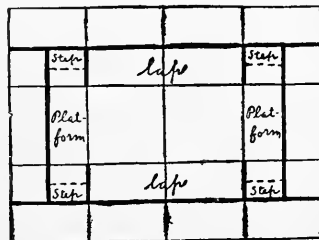 Step
Step
Plat-
form
Plat-
form
Step
Step